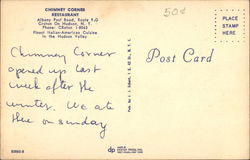 CHIMNEY CORNER
RESTAURANT
Albany Post Road, Route 9-G
Croton On Hudson, N. Y.
Phone: CRoton 1-8062
Finest Italian-American Cuisine
in the Hudson Valley
50¢
PLACE
STAMP
HERE
Post Card
Chimney Corner
opened up last
week after the
winter. We ate
there on sunday
dp